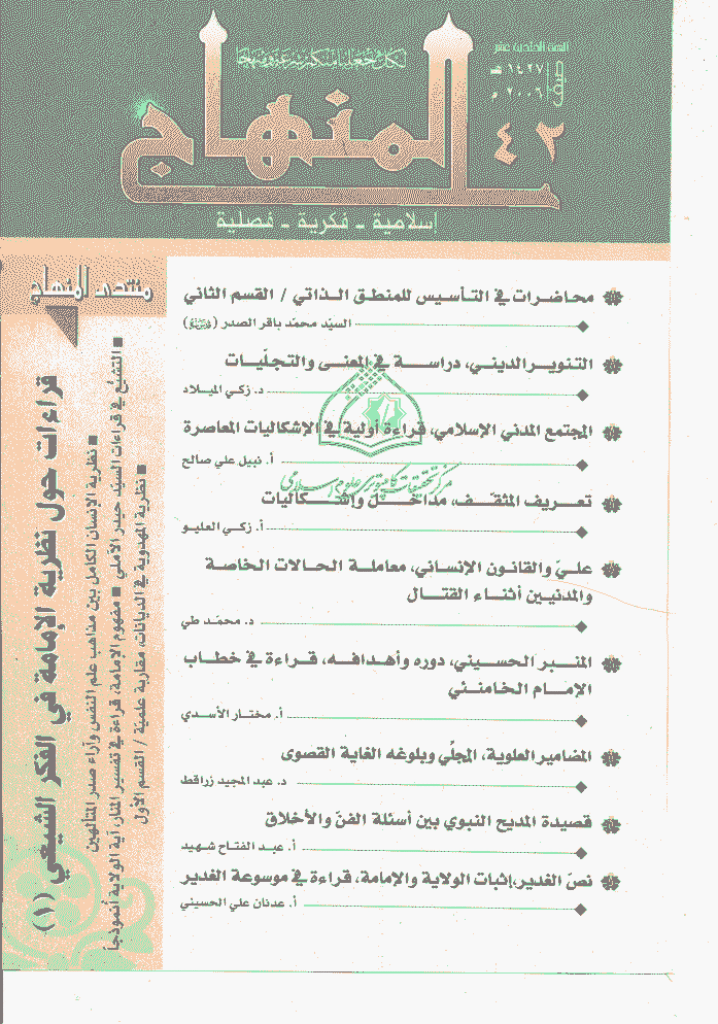 السنة الحادية عشر
صيف
١٤٢٧ هـ
٢٠٠٦ م
٤٢
لكل جعلنا منكم شرعة ومنهاجا
المنهاج
إسلامية - فكرية - فصلية
محاضرات في التأسيس للمنطق الذاتي / القسم الثاني
السيّد محمد باقر الصدر
التنوير الديني، دراسة في المعنى والتجلّيات
د. زكي الميلاد
المجتمع المدني الإسلامي، قراءة أولية في الإشكاليات المعاصرة
أ. نبيل علي صالح
مركز تحقيقات كامپيوتری علوم اسلامی
تعريف المثقف، مداخل وإشكاليات
أ. زكي العليو
عليّ والقانون الإنساني، معاملة الحالات الخاصة
والمدنيين أثناء القتال
د. محمّد طي
المنبر الحسيني، دوره وأهدافه، قراءة في خطاب
الإمام الخامنئي
أ. مختار الأسدي
المضامير العلوية، المجلّي وبلوغه الغاية القصوى
د. عبد المجيد زراقط
قصيدة المديح النبوي بين أسئلة الفنّ والأخلاق
أ. عبد الفتاح شهيد
نصّ الغدير، إثبات الولاية والإمامة، قراءة في موسوعة الغدير
أ. عدنان علي الحسيني
منتدى المنهاج
قراءات حول نظرية الإمامة في الفكر الشيعي (١)
نظرية الإنسان الكامل بين مذاهب علم النفس وآراء صدر المتألهين
التشيّع في قراءات السيّد حيدر الآملي ■ مفهوم الإمامة، قراءة في تفسير المنار، آية الولاية أنموذجاً
نظرية المهدوية في الديانات، مقاربة علميّة / القسم الأول